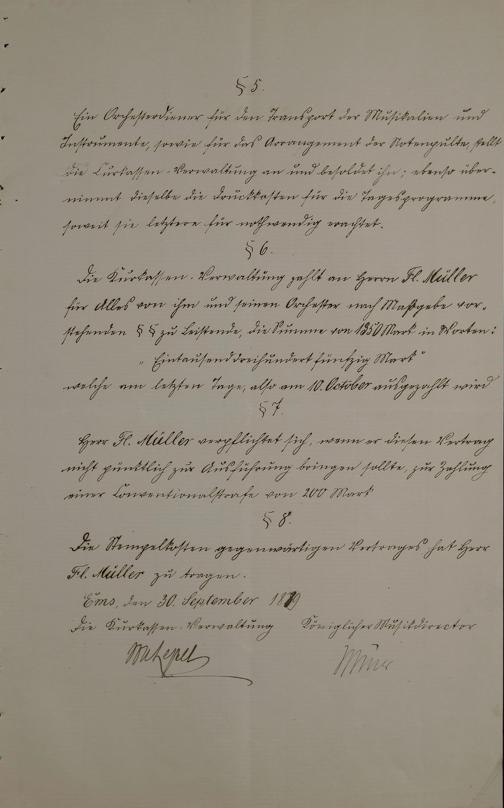 § 5.
Ein Orchesterdiener für den Transport der Musikalien und
Instrumente, sowie für das Arrangement der Notenpulte, stellt
die Curkassen-Verwaltung an und besoldet ihn; ebenso über-
nimmt dieselbe die Druckkosten für die Tagesprogramme,
soweit sie letztere für nothwendig erachtet.
§ 6.
Die Kurkassen-Verwaltung zahlt an Herrn Fl. Müller
für Alles von ihm und seinen Orchester nach Maßgabe vor-
stehenden §§ zu Leistende, die Summe von 1350 Mark in Worten:
„Eintausenddreihundert fünfzig Mark"
welche am letzten Tage, also am 10. October ausgezahlt wird
§ 7.
Herr Fl. Müller verpflichtet sich, wenn er diesen Vertrag
nicht pünktlich zur Ausführung bringen sollte, zur Zahlung
einer Conventionalstrafe von 200 Mark
§ 8.
Die Stempelkosten gegenwärtigen Vertrages hat Herr
Fl. Müller zu tragen.
Ems, den 30. September
Die Kurkassen-Verwaltung Königlicher Musikdirector